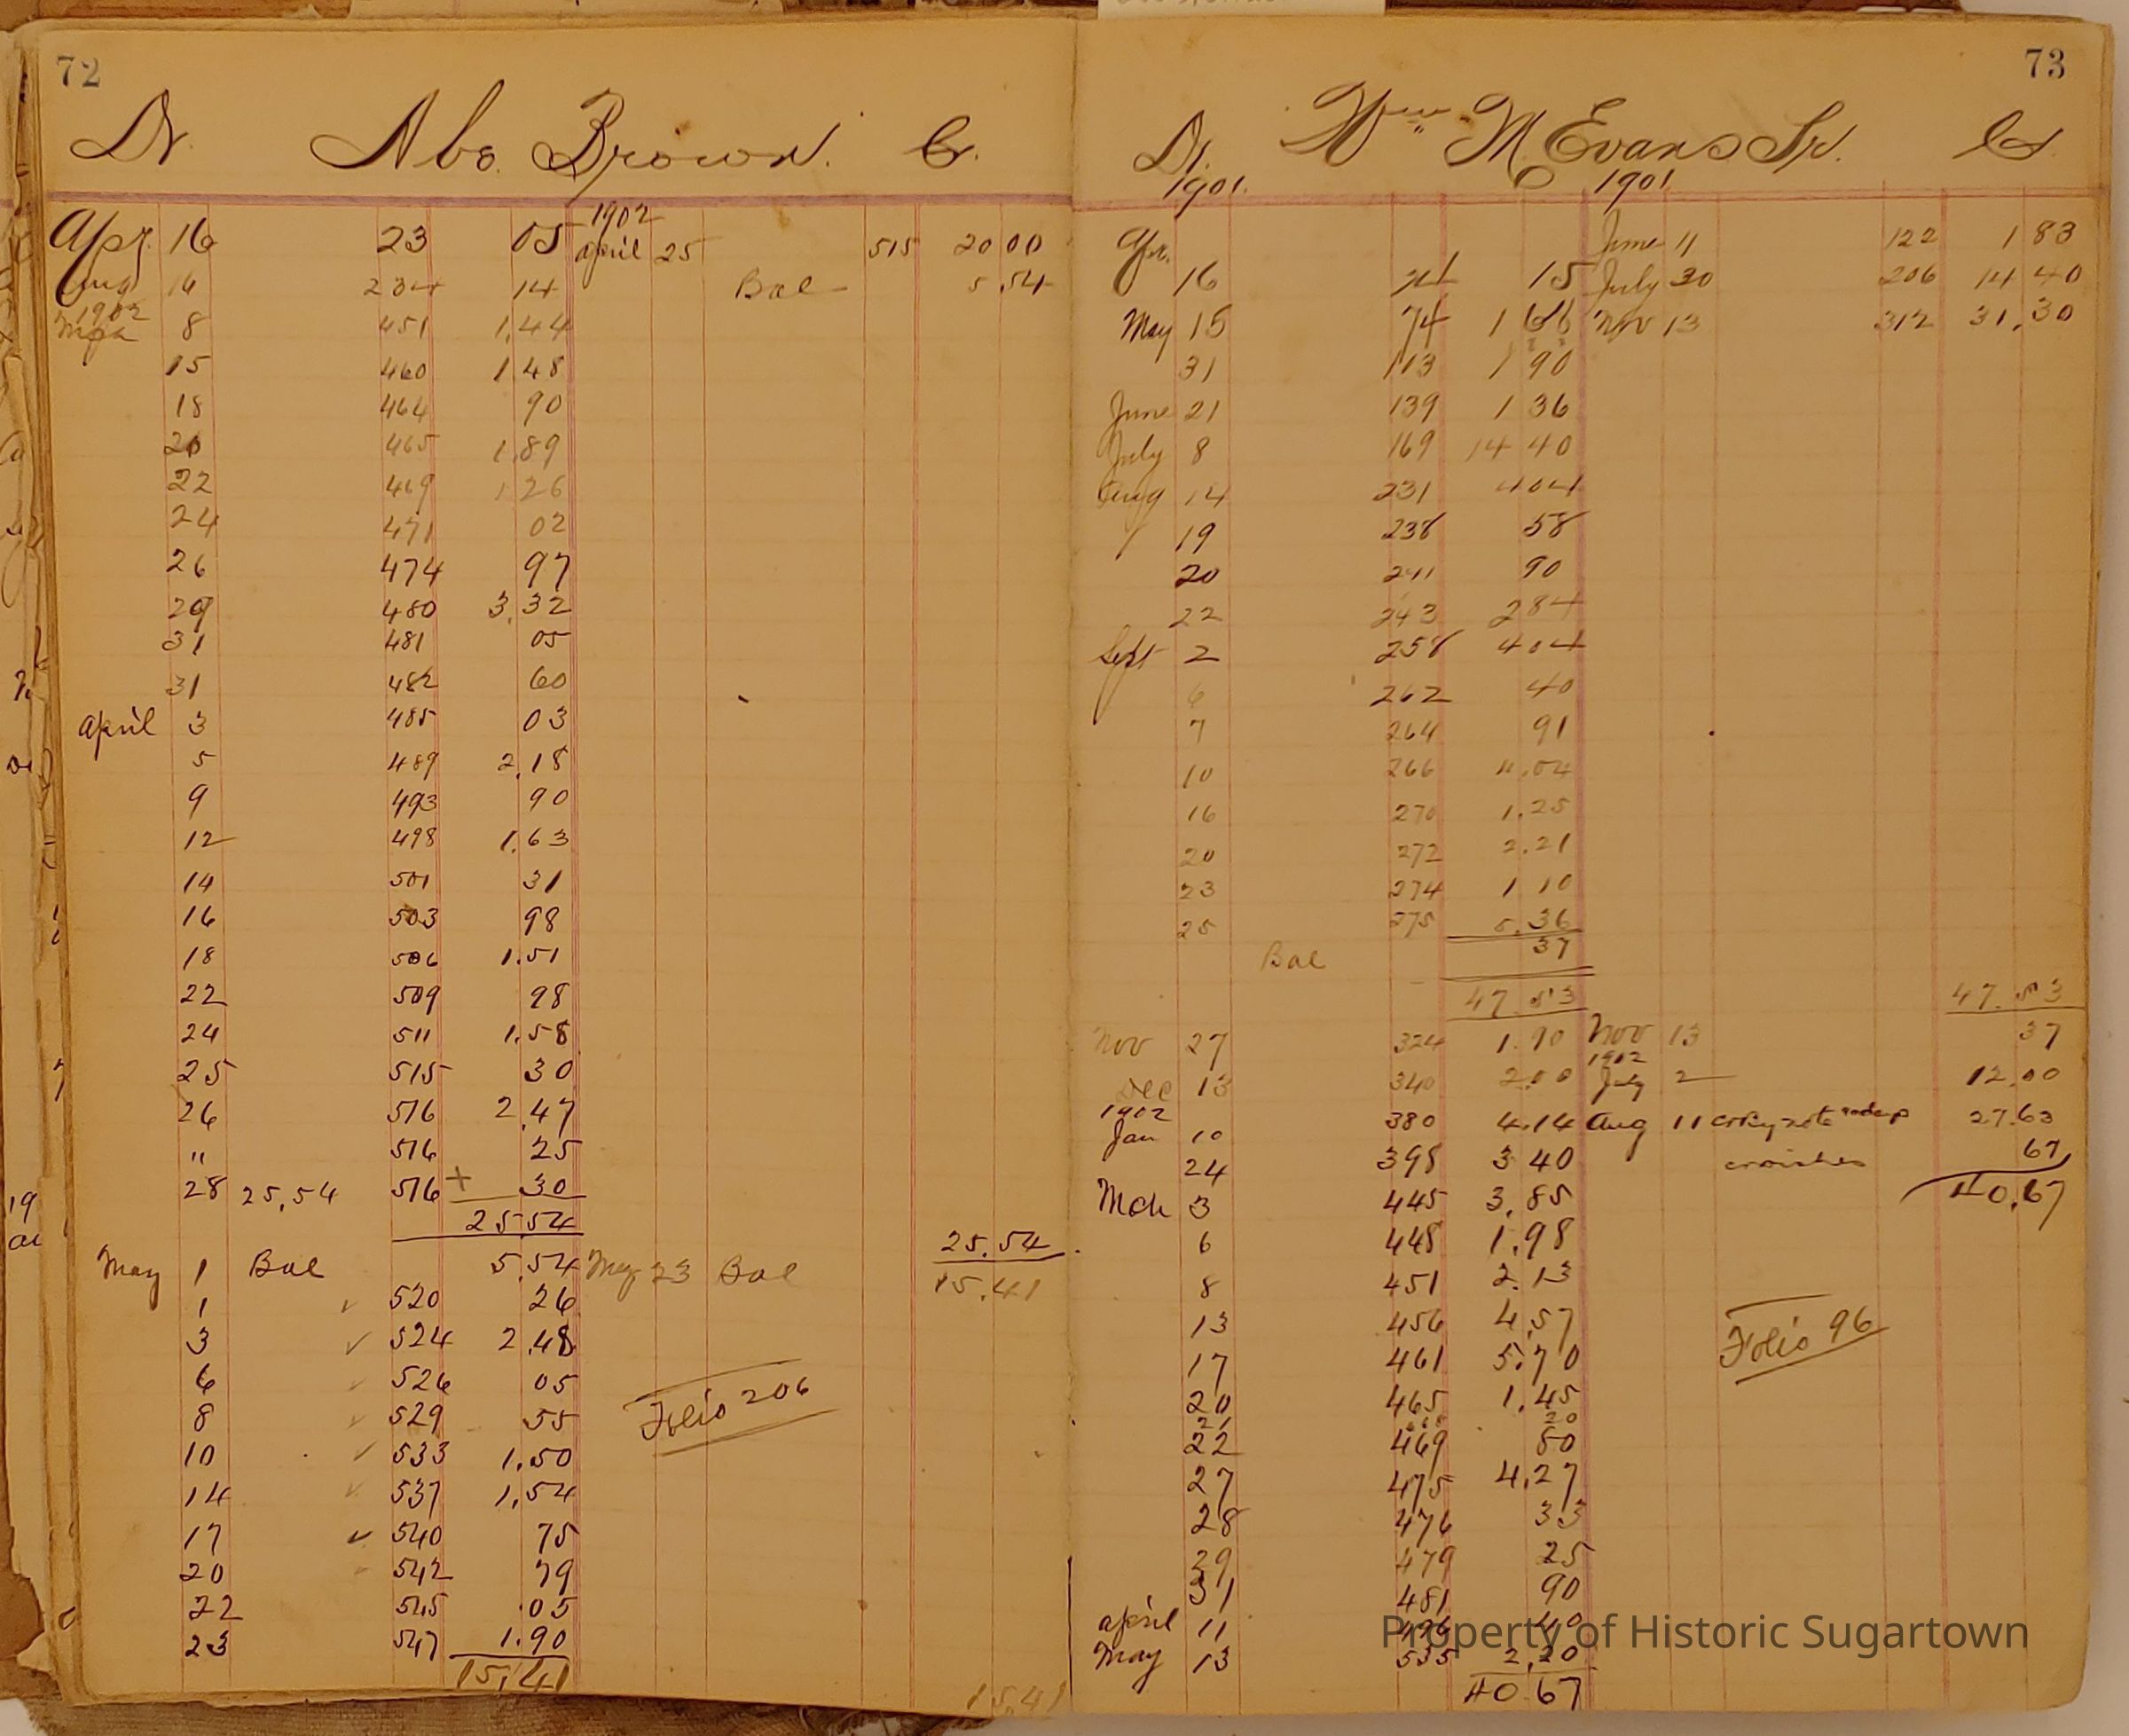 72
Dr. Abs. Brown. Cr.
Apr. 16 23 05 1902 april 25 515 20 00
Aug 16 234 14 Bal 5 54
1902
Mch 8 451 1,44
15 460 1 48
18 464 90
20 465 1.89
22 469 1 26
24 471 02
26 474 97
29 480 3.32
31 481 05
31 482 60
april 3 485 03
5 489 2,18
9 493 90
12 498 1.63
14 501 31
16 503 98
18 506 1.51
22 509 98
24 511 1.58
25 515 30
26 516 2.47
" 516 25
28 25,54 516 + 30
25 54 25.54
May 1 Bal 5.54 May 23 Bal 15.41
1 ✓ 520 26
3 ✓ 524 2.48
6 ✓ 526 05
8 ✓ 529 55
Folio 206
10 ✓ 533 1.50
14 ✓ 537 1,54
17 ✓ 540 75
20 542 79
22 545 .05
23 547 1.90
15,41 15,41
73
Dr. Wm M Evans Sr. Cr
1901. 1901.
Apr. 16 21 15 June 11 122 1 83
July 30 206 14 40
May 15 74 1 66 Nov 13 312 31,30
31 113 1 90
June 21 139 1 36
July 8 169 14 40
Aug 14 231 4 04
19 238 58
20 241 90
22 243 2 84
Sept 2 258 4 04
6 262 40
7 264 91
10 266 4.04
16 270 1.25
20 272 2.21
23 274 1 10
25 275 5.36
Bal 37
47.53 47.53
Nov 27 324 1.90 Nov 13 37
Dec 13 340 2.00 1902 July 2 12.00
1902
Jan 10 380 4.14 Aug 11 27.63
24 398 3 40 67
Mch 3 445 3,85 40.67
6 448 1.98
8 451 2.13
13 456 4,57
Folio 96
17 461 5.70
20 465 1.45
21 468 20
22 469 80
27 475 4.27
28 476 33
29 479 25
31 481 90
april 11 496 40
May 13 535 2,20
40 67
Property of Historic Sugartown